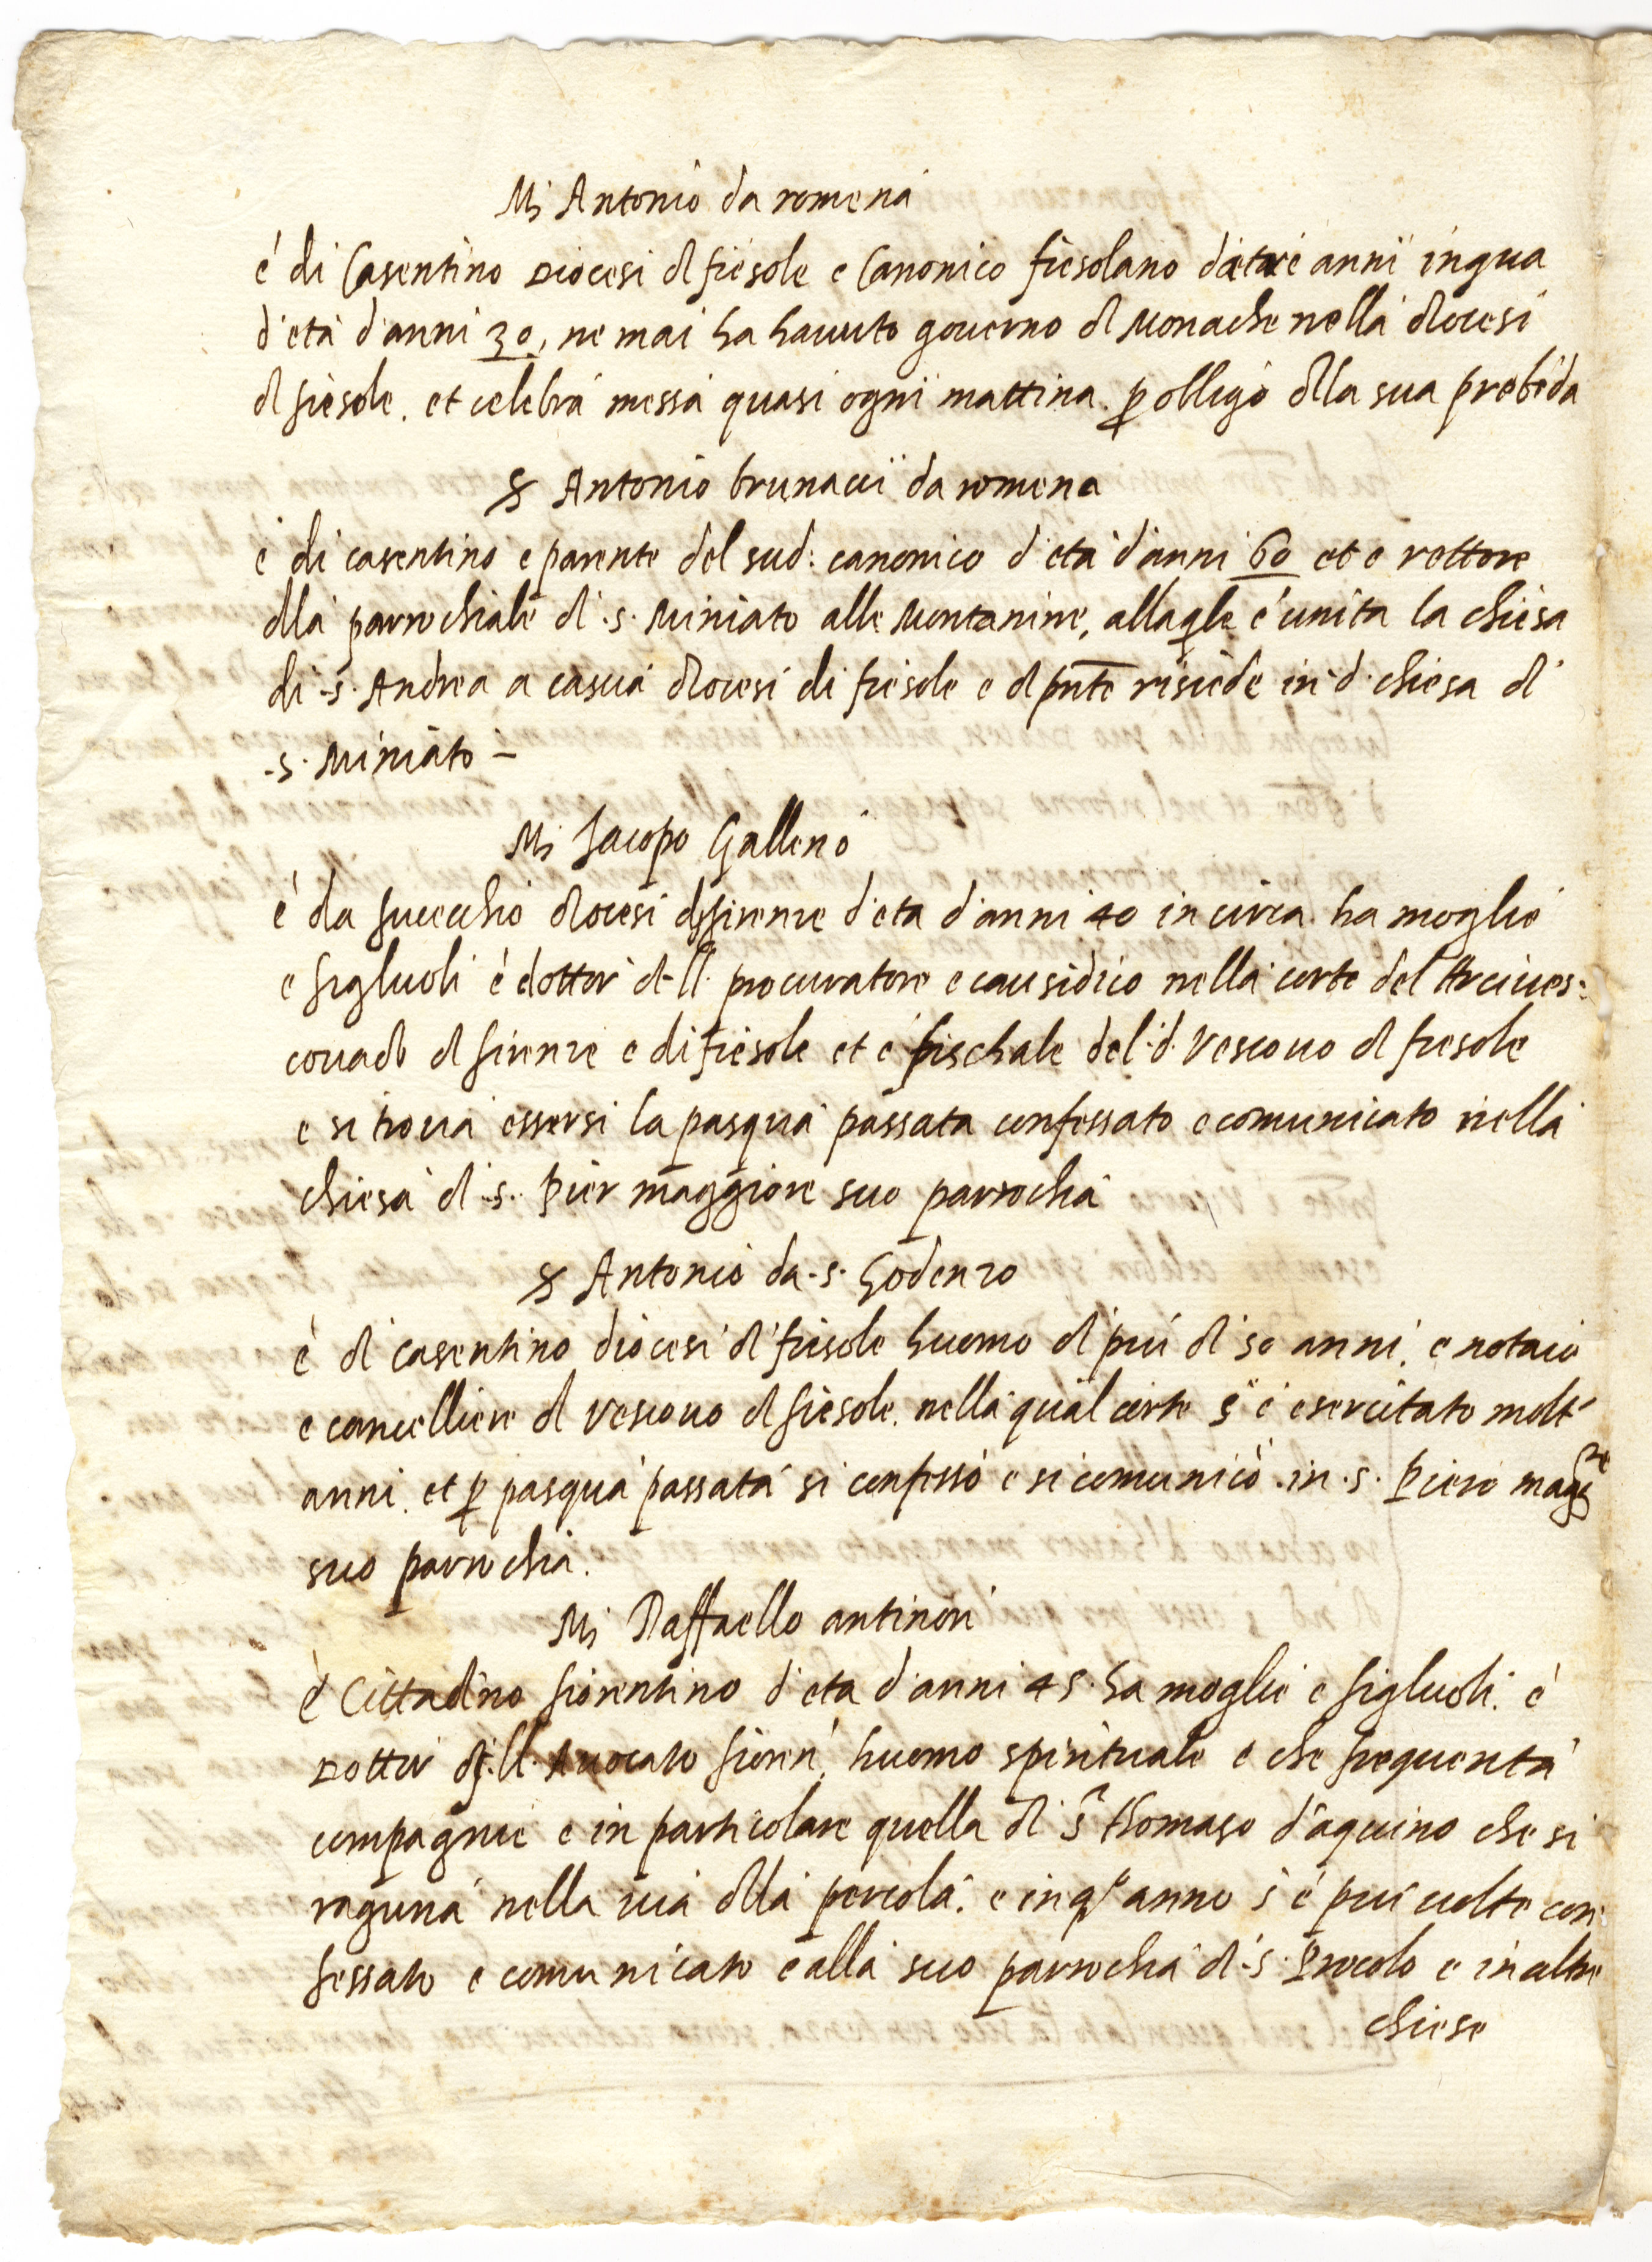 Mⱼ Antonio da romena
è di Casentino Diocesi di fiesole e Canonico fiesolano da tre anni in qua
d'età d'anni 30, ne mai ha havuto governo di Monache nella diocesi
di fiesole. et celebra messa quasi ogni mattina. ꝑ obligo dlla sua prebēda
S Antonio brunacci da romena
è di casentino e parente del sud: canonico d'età d'anni 60 et è rettore
dlla parrochiale di .s. Miniato alle Montanine, alla qle è unita la chiesa
di .s. Andrea a cascia diocesi di fiesole e di pn̄te risiede in d. chiesa di
.s. Miniato –
Mⱼ Jacopo Galleno
è da fucecchio diocesi di firenze d'età d'anni 40 in circa. ha moglie
e figluoli è dottor di ll. procuratore e causidico nella corte del Arcives:
covado di firenze e di fiesole et è fischale del d. Vescovo di fiesole
e si trova essersi la pasqua passata confessato e comunicato nella
chiesa di .s. Pier maggiore suo parrochia
S Antonio da .s. Godenzo
è di casentino diocesi di fiesole huomo di più di 50 anni. e notaio
e cancelliere dl vescovo di fiesole. nella qual corte s'è esercitato molt'
anni. et ꝑ pasqua passata si confessò e si comunicò in .s. Piero magg.re
suo parrochia.
Mⱼ Raffaello antinori
è Cittadino fiorentino d'età d'anni 45. ha moglie e figluoli. è
Dottor di ll. Avocato fioren. huomo spirituale e che frequenta
compagnie e in particolare quella di S. Thomaso d'aquino che si
raguna nella via dlla pergola. e in q.o anno s'è più volte con
fessato e comunicato e alla suo parrochia di .s. Procolo e in altre
chiese